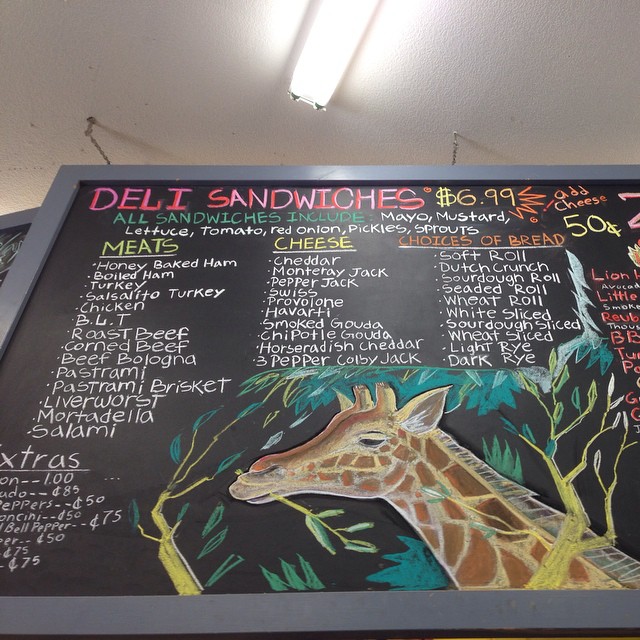 DELI SANDWICHES $6.99 add cheese 50¢
ALL SANDWICHES INCLUDE: Mayo, Mustard,
Lettuce, Tomato, red onion, Pickles, Sprouts
MEATS
Honey Baked Ham
Boiled Ham
Turkey
Salsalito Turkey
Chicken
B.L.T
Roast Beef
Corned Beef
Beef Bologna
Pastrami
Pastrami Brisket
Liverworst
Mortadella
Salami
CHEESE
Cheddar
Monteray Jack
Pepper Jack
Swiss
Provolone
Havarti
Smoked Gouda
Chipotle Gouda
Horseradish Cheddar
3 Pepper Colby Jack
CHOICES OF BREAD
Soft Roll
Dutch Crunch
Sourdough Roll
Seeded Roll
Wheat Roll
White Sliced
Sourdough Sliced
Wheat Sliced
Light Rye
Dark Rye
Extras
on-- 1.00
ado-- ¢85
Peppers-- ¢50
oncini-- ¢50
Bell Pepper-- ¢75
per-- ¢50
-- ¢75
-- ¢75
Lion
Avocad
Little
Smoke
Reub
Thous
BB
Tur